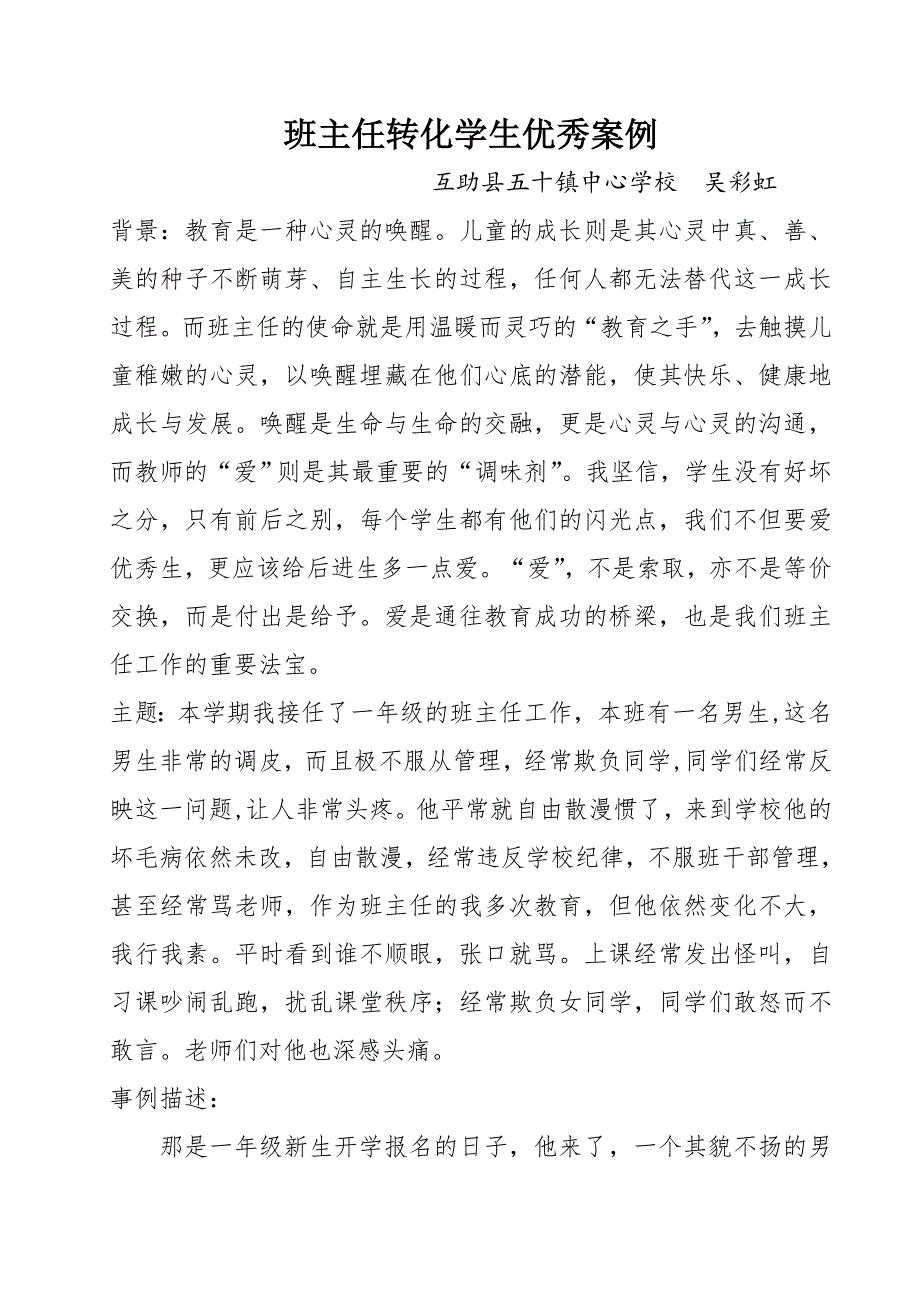 班主任转化学生优秀案例
互助县五十镇中心学校 吴彩虹
背景：教育是一种心灵的唤醒。儿童的成长则是其心灵中真、善、
美的种子不断萌芽、自主生长的过程，任何人都无法替代这一成长
过程。而班主任的使命就是用温暖而灵巧的“教育之手”，去触摸儿
童稚嫩的心灵，以唤醒埋藏在他们心底的潜能，使其快乐、健康地
成长与发展。唤醒是生命与生命的交融，更是心灵与心灵的沟通，
而教师的“爱”则是其最重要的“调味剂”。我坚信，学生没有好坏
之分，只有前后之别，每个学生都有他们的闪光点，我们不但要爱
优秀生，更应该给后进生多一点爱。“爱”，不是索取，亦不是等价
交换，而是付出是给予。爱是通往教育成功的桥梁，也是我们班主
任工作的重要法宝。
主题：本学期我接任了一年级的班主任工作，本班有一名男生,这名
男生非常的调皮，而且极不服从管理，经常欺负同学,同学们经常反
映这一问题,让人非常头疼。他平常就自由散漫惯了，来到学校他的
坏毛病依然未改，自由散漫，经常违反学校纪律，不服班干部管理，
甚至经常骂老师，作为班主任的我多次教育，但他依然变化不大，
我行我素。平时看到谁不顺眼，张口就骂。上课经常发出怪叫，自
习课吵闹乱跑，扰乱课堂秩序；经常欺负女同学，同学们敢怒而不
敢言。老师们对他也深感头痛。
事例描述：
那是一年级新生开学报名的日子，他来了，一个其貌不扬的男